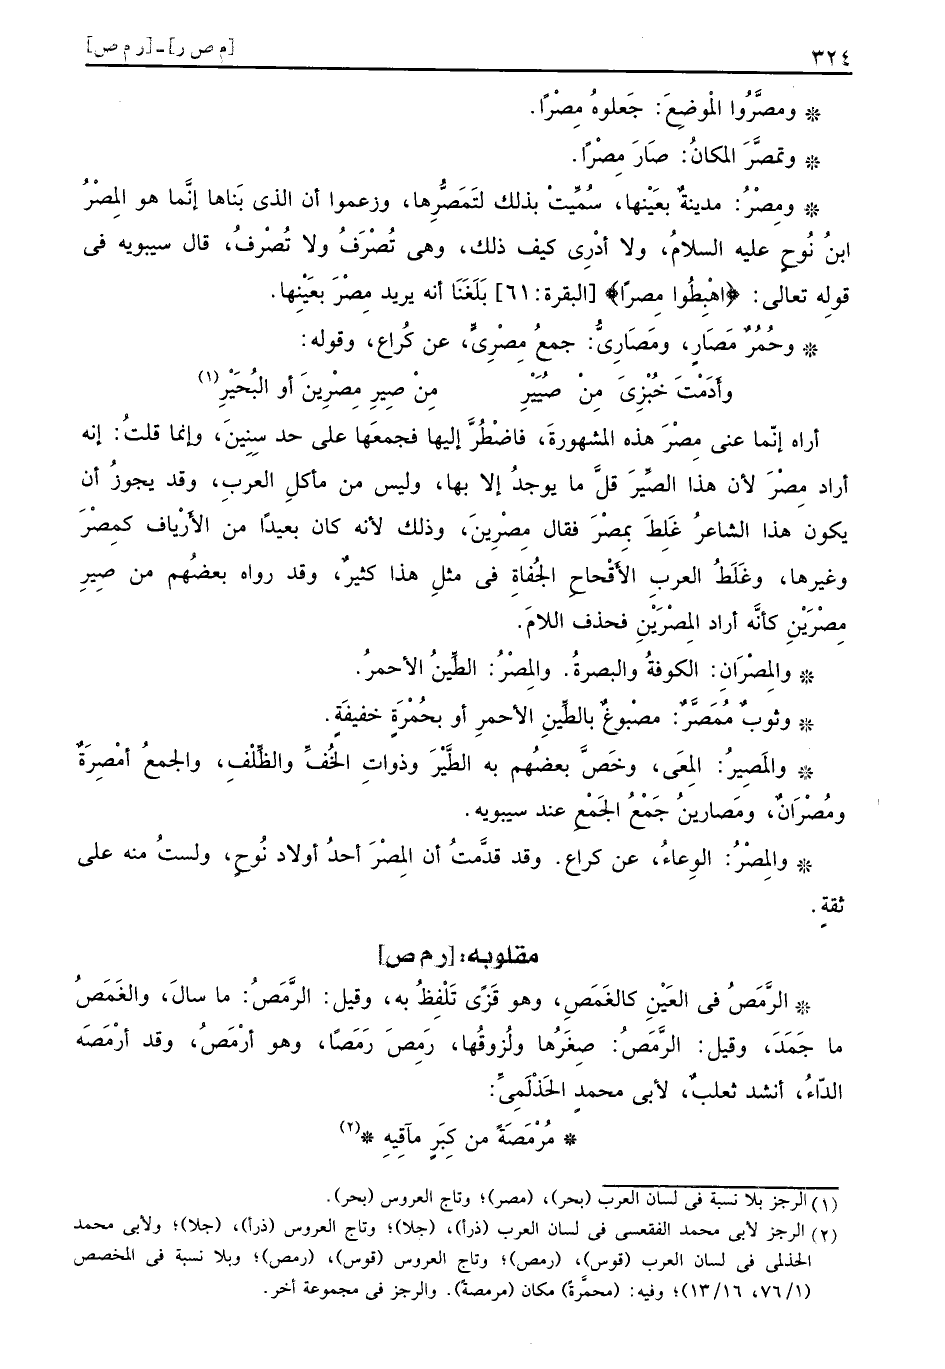 ٣٢٤ [م ص ر] ـ [ر م ص]
* ومصَّرُوا الْموضِعَ: جَعلوهُ مِصْرًا.
* وتمصَّرَ المكانُ: صَارَ مِصْرًا.
* ومِصْرُ: مدينةٌ بعَيْنِها، سُمِّيتْ بذلك لتَمَصُّرِها، وزعموا أن الذى بَناها إنَّما هو المِصْرُ
ابنُ نُوحٍ عليه السلامُ، ولا أدْرِى كيف ذلك، وهى تُصْرَفُ ولا تُصْرفُ، قال سيبويه فى
قولِه تعالى: ﴿اهْبِطُوا مِصرًا﴾ [البقرة: ٦١] بَلَغَنَا أنه يريد مِصْرَ بعَيْنِها.
* وحُمُرٌ مَصَارٍ، ومَصَارِىُّ: جمعُ مِصْرِىٍّ، عن كُراع، وقوله:
وأَدَمْتَ خُبْزِىَ مِنْ صُيَيْرِ مِنْ صِيرِ مِصْرِينَ أو البُحَيْرِ(١)
أراه إنّما عنى مِصْرَ هذه المشهورةَ، فاضْطُرَّ إليها فجمعَها على حد سِنِينَ، وإنما قلتُ: إنه
أراد مِصْرَ لأن هذا الصِّيَر قلَّ ما يوجدُ إلا بها، وليس من مأكلِ العربِ، وقد يجوزُ أن
يكون هذا الشاعرُ غَلِطَ بمِصْرَ فقال مِصْرِينَ، وذلك لأنه كان بعيدًا من الأرْيافِ كمِصْرَ
وغيرِها، وغَلَطُ العربِ الأقْحاحِ الجُفاةِ فى مثلِ هذا كثيرٌ، وقد رواه بعضُهم من صِيرِ
مِصْرَيْنِ كأنَّه أراد المِصْرَيْنِ فحذف اللامَ.
* والمِصْرَانِ: الكوفةُ والبصرةُ. والمِصْرُ: الطِّينُ الأحمرُ.
* وثوبٌ مُمَصَّرٌ: مصْبوغٌ بالطِّينِ الأحمرِ أو بحُمْرَةٍ خفيفَةٍ.
* والمَصِيرُ: المِعَى، وخَصَّ بعضُهم به الطَّيْرَ وذواتِ الخُفِّ والظِّلْفِ، والجمعُ أمْصِرَةٌ
ومُصْرَانٌ، ومَصارينُ جَمْعُ الجَمْعِ عند سيبويه.
* والمِصْرُ: الوِعاءُ، عن كراع. وقد قدَّمتُ أن المِصْرَ أحدُ أولاد نُوحٍ، ولستُ منه على
ثقةٍ.
مقلوبه: [ر م ص]
* الرَّمَصُ فى العَيْنِ كالغَمَصِ، وهو قَزًى تَلْفِظُ به، وقيل: الرَّمَصُ: ما سالَ، والغَمَصُ
ما جَمَدَ، وقيل: الرَّمَصُ: صِغَرُها ولُزوقُها، رَمِصَ رَمَصًا، وهو أرْمَصُ، وقد أرْمَصَه
الدّاءُ، أنشد ثعلبٌ، لأبى محمدٍ الحَذْلَمِىِّ:
* مُرْمَصَةً من كِبَرٍ مآقِيهِ *(٢)
(١) الرجز بلا نسبة فى لسان العرب (بحر)، (مصر)؛ وتاج العروس (بحر).
(٢) الرجز لأبى محمد الفقعسى فى لسان العرب (ذرأ)، (جلا)؛ وتاج العروس (ذرأ)، (جلا)؛ ولأبى محمد
الحذلمى فى لسان العرب (قوس)، (رمص)؛ وتاج العروس (قوس)، (رمص)؛ وبلا نسبة فى المخصص
(٧٦/١، ١٣/١٦)؛ وفيه: (محمَّرةً) مكان (مرمصةً). والرجز فى مجموعة أخر.